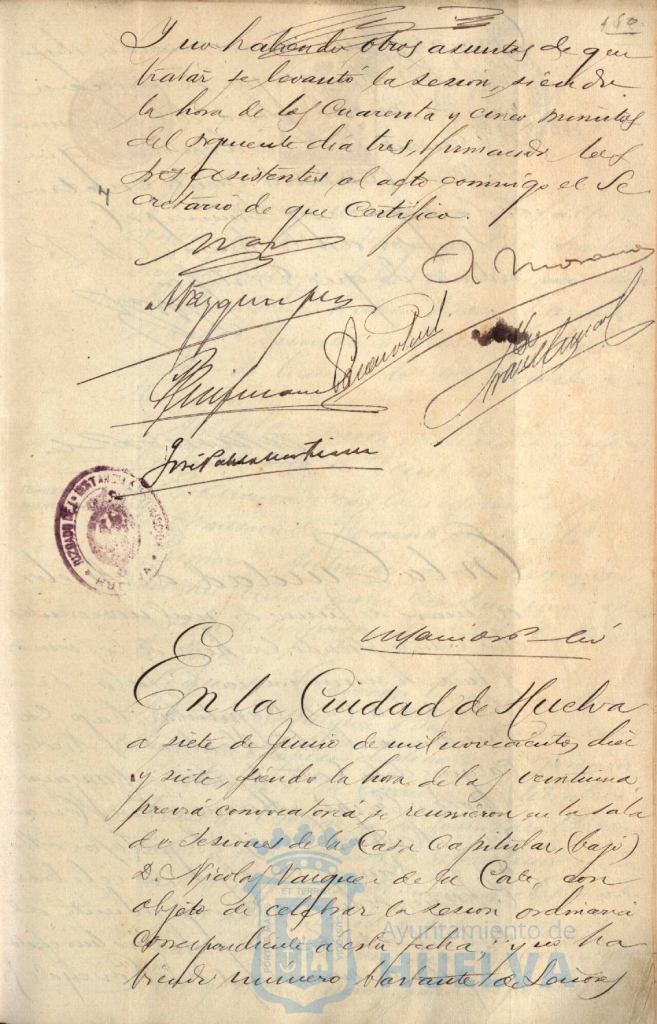 180
Y no habiendo otros asuntos de que
tratar se levantó la sesion, siendo
la hora de las cuarenta y cinco minutos
del siguiente dia tres, firmando los
Sres asistentes al acto conmigo el Se
cretario de que certifico.
A. Moreno
JUZGADO DE 1ª INSTANCIA
HUELVA
En la Ciudad de Huelva
a siete de Junio de mil novecientos diez
y siete, siendo la hora de las veintiuna
previa convocatoria se reunieron en la sala
de Sesiones de la Casa Capitular, (bajo)
D. Nicolas Vazquez de la Corte, con
objeto de celebrar la sesion ordinaria
correspondiente a esta fecha y no ha
biendo numero bastante de Señores
Ayuntamiento de
HUELVA